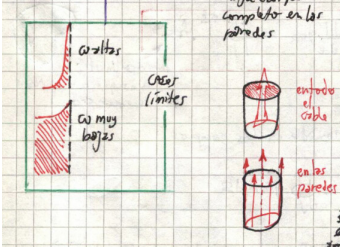 completo en las
paredes
ω altas
casos
límites
ω muy
bajas
en todo
el
cable
en las
paredes